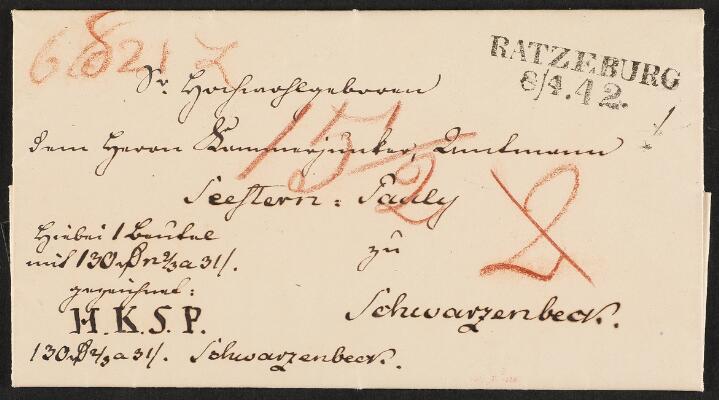 RATZEBURG
8/4.42.
Sr. Hochwohlgeboren
dem Herrn Kammerjunker, Amtmann
Seestern=Pauly
zu
Schwarzenbeck.
15 1/2
2
Hiebei 1 Beutel
mit 130
gezeichnet:
H.K.S.P.
130 Schwarzenbeck.